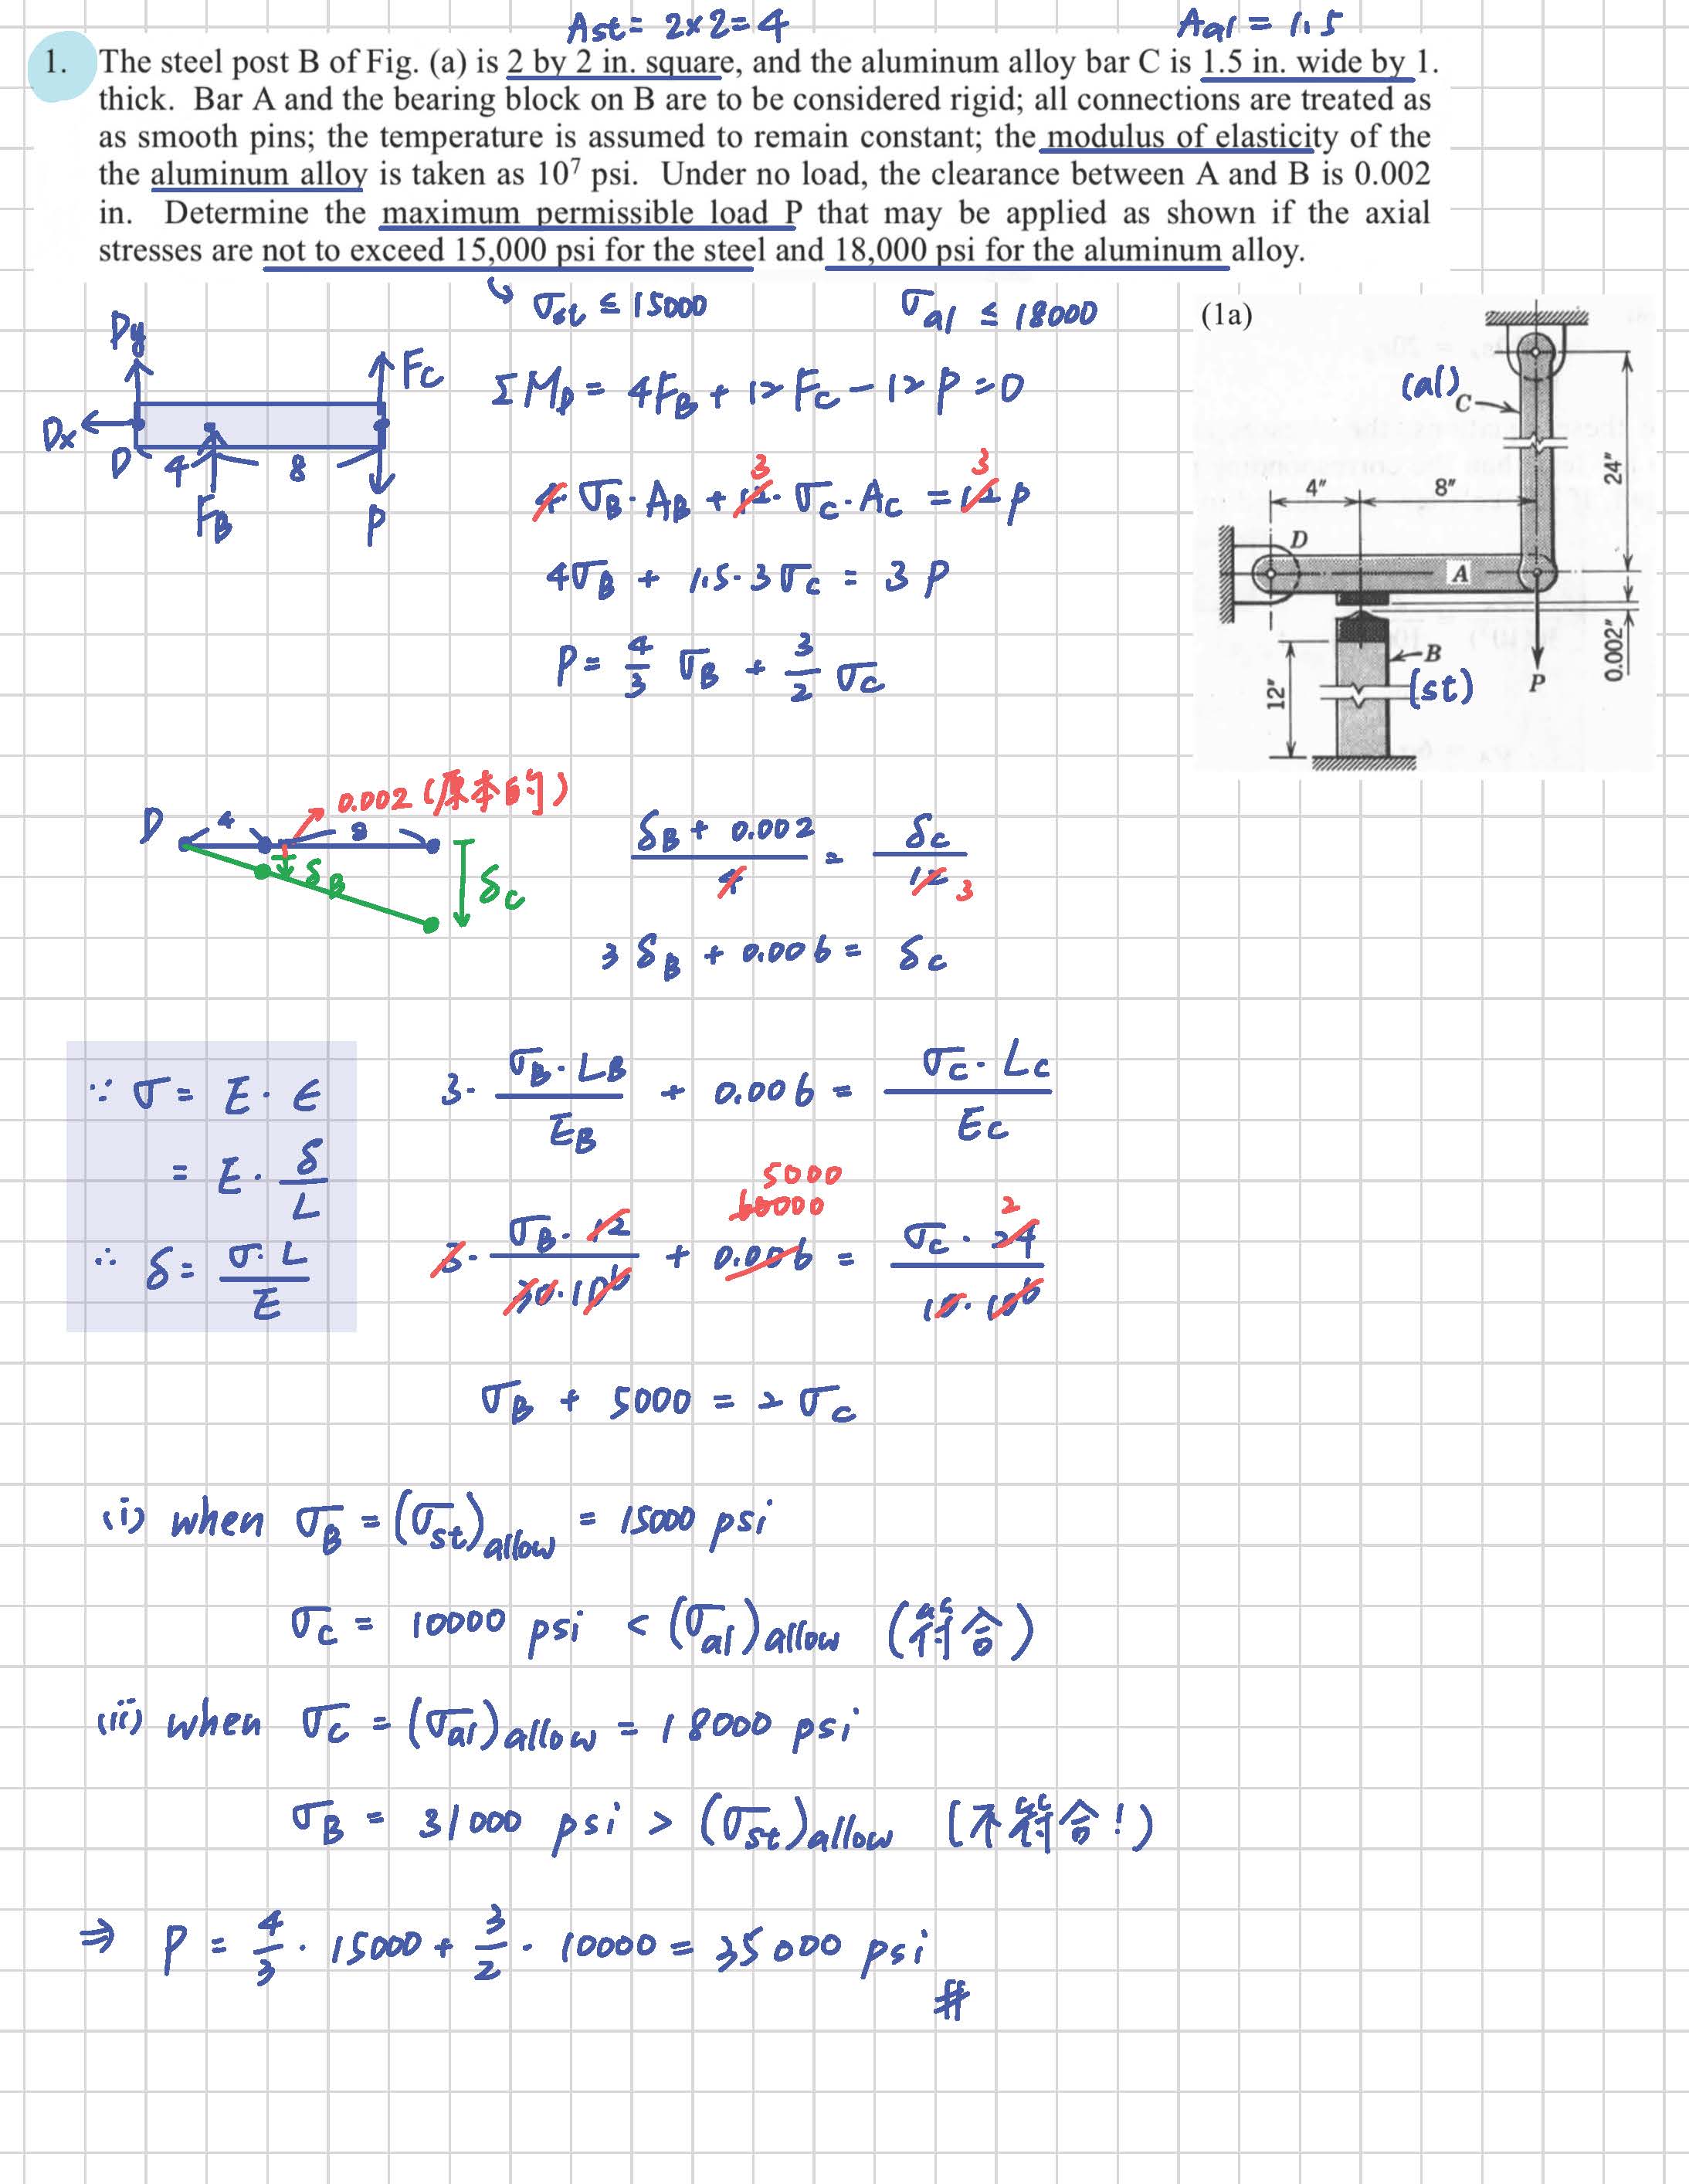 Ast = 2×2=4
Aal = 1.5
1. The steel post B of Fig. (a) is 2 by 2 in. square, and the aluminum alloy bar C is 1.5 in. wide by 1.
thick. Bar A and the bearing block on B are to be considered rigid; all connections are treated as
as smooth pins; the temperature is assumed to remain constant; the modulus of elasticity of the
the aluminum alloy is taken as 10⁷ psi. Under no load, the clearance between A and B is 0.002
in. Determine the maximum permissible load P that may be applied as shown if the axial
stresses are not to exceed 15,000 psi for the steel and 18,000 psi for the aluminum alloy.
σst ≤ 15000
σal ≤ 18000
(1a)
Dy
Fc
Dx
D
4
8
FB
P
ΣMD = 4FB + 12Fc − 12P = 0
4·σB·AB + 12·σc·Ac = 12P
3
3
4σB + 1.5·3σc = 3P
P = 4/3 σB + 3/2 σc
(al)
C
24"
4"
8"
D
A
0.002"
B
(st)
12"
P
D
4
0.002 (原本的)
8
δB
δc
(δB + 0.002)/4 = δc/12
3
3δB + 0.006 = δc
∵ σ = E·ϵ
= E·δ/L
∴ δ = σ·L/E
3·(σB·LB)/EB + 0.006 = (σc·Lc)/Ec
5000
60000
2
3·(σB·12)/(30·10⁶) + 0.006 = (σc·24)/(10·10⁶)
σB + 5000 = 2σc
(i) when σB = (σst)allow = 15000 psi
σc = 10000 psi < (σal)allow (符合)
(ii) when σc = (σal)allow = 18000 psi
σB = 31000 psi > (σst)allow (不符合!)
⇒ P = 4/3 · 15000 + 3/2 · 10000 = 35000 psi
#